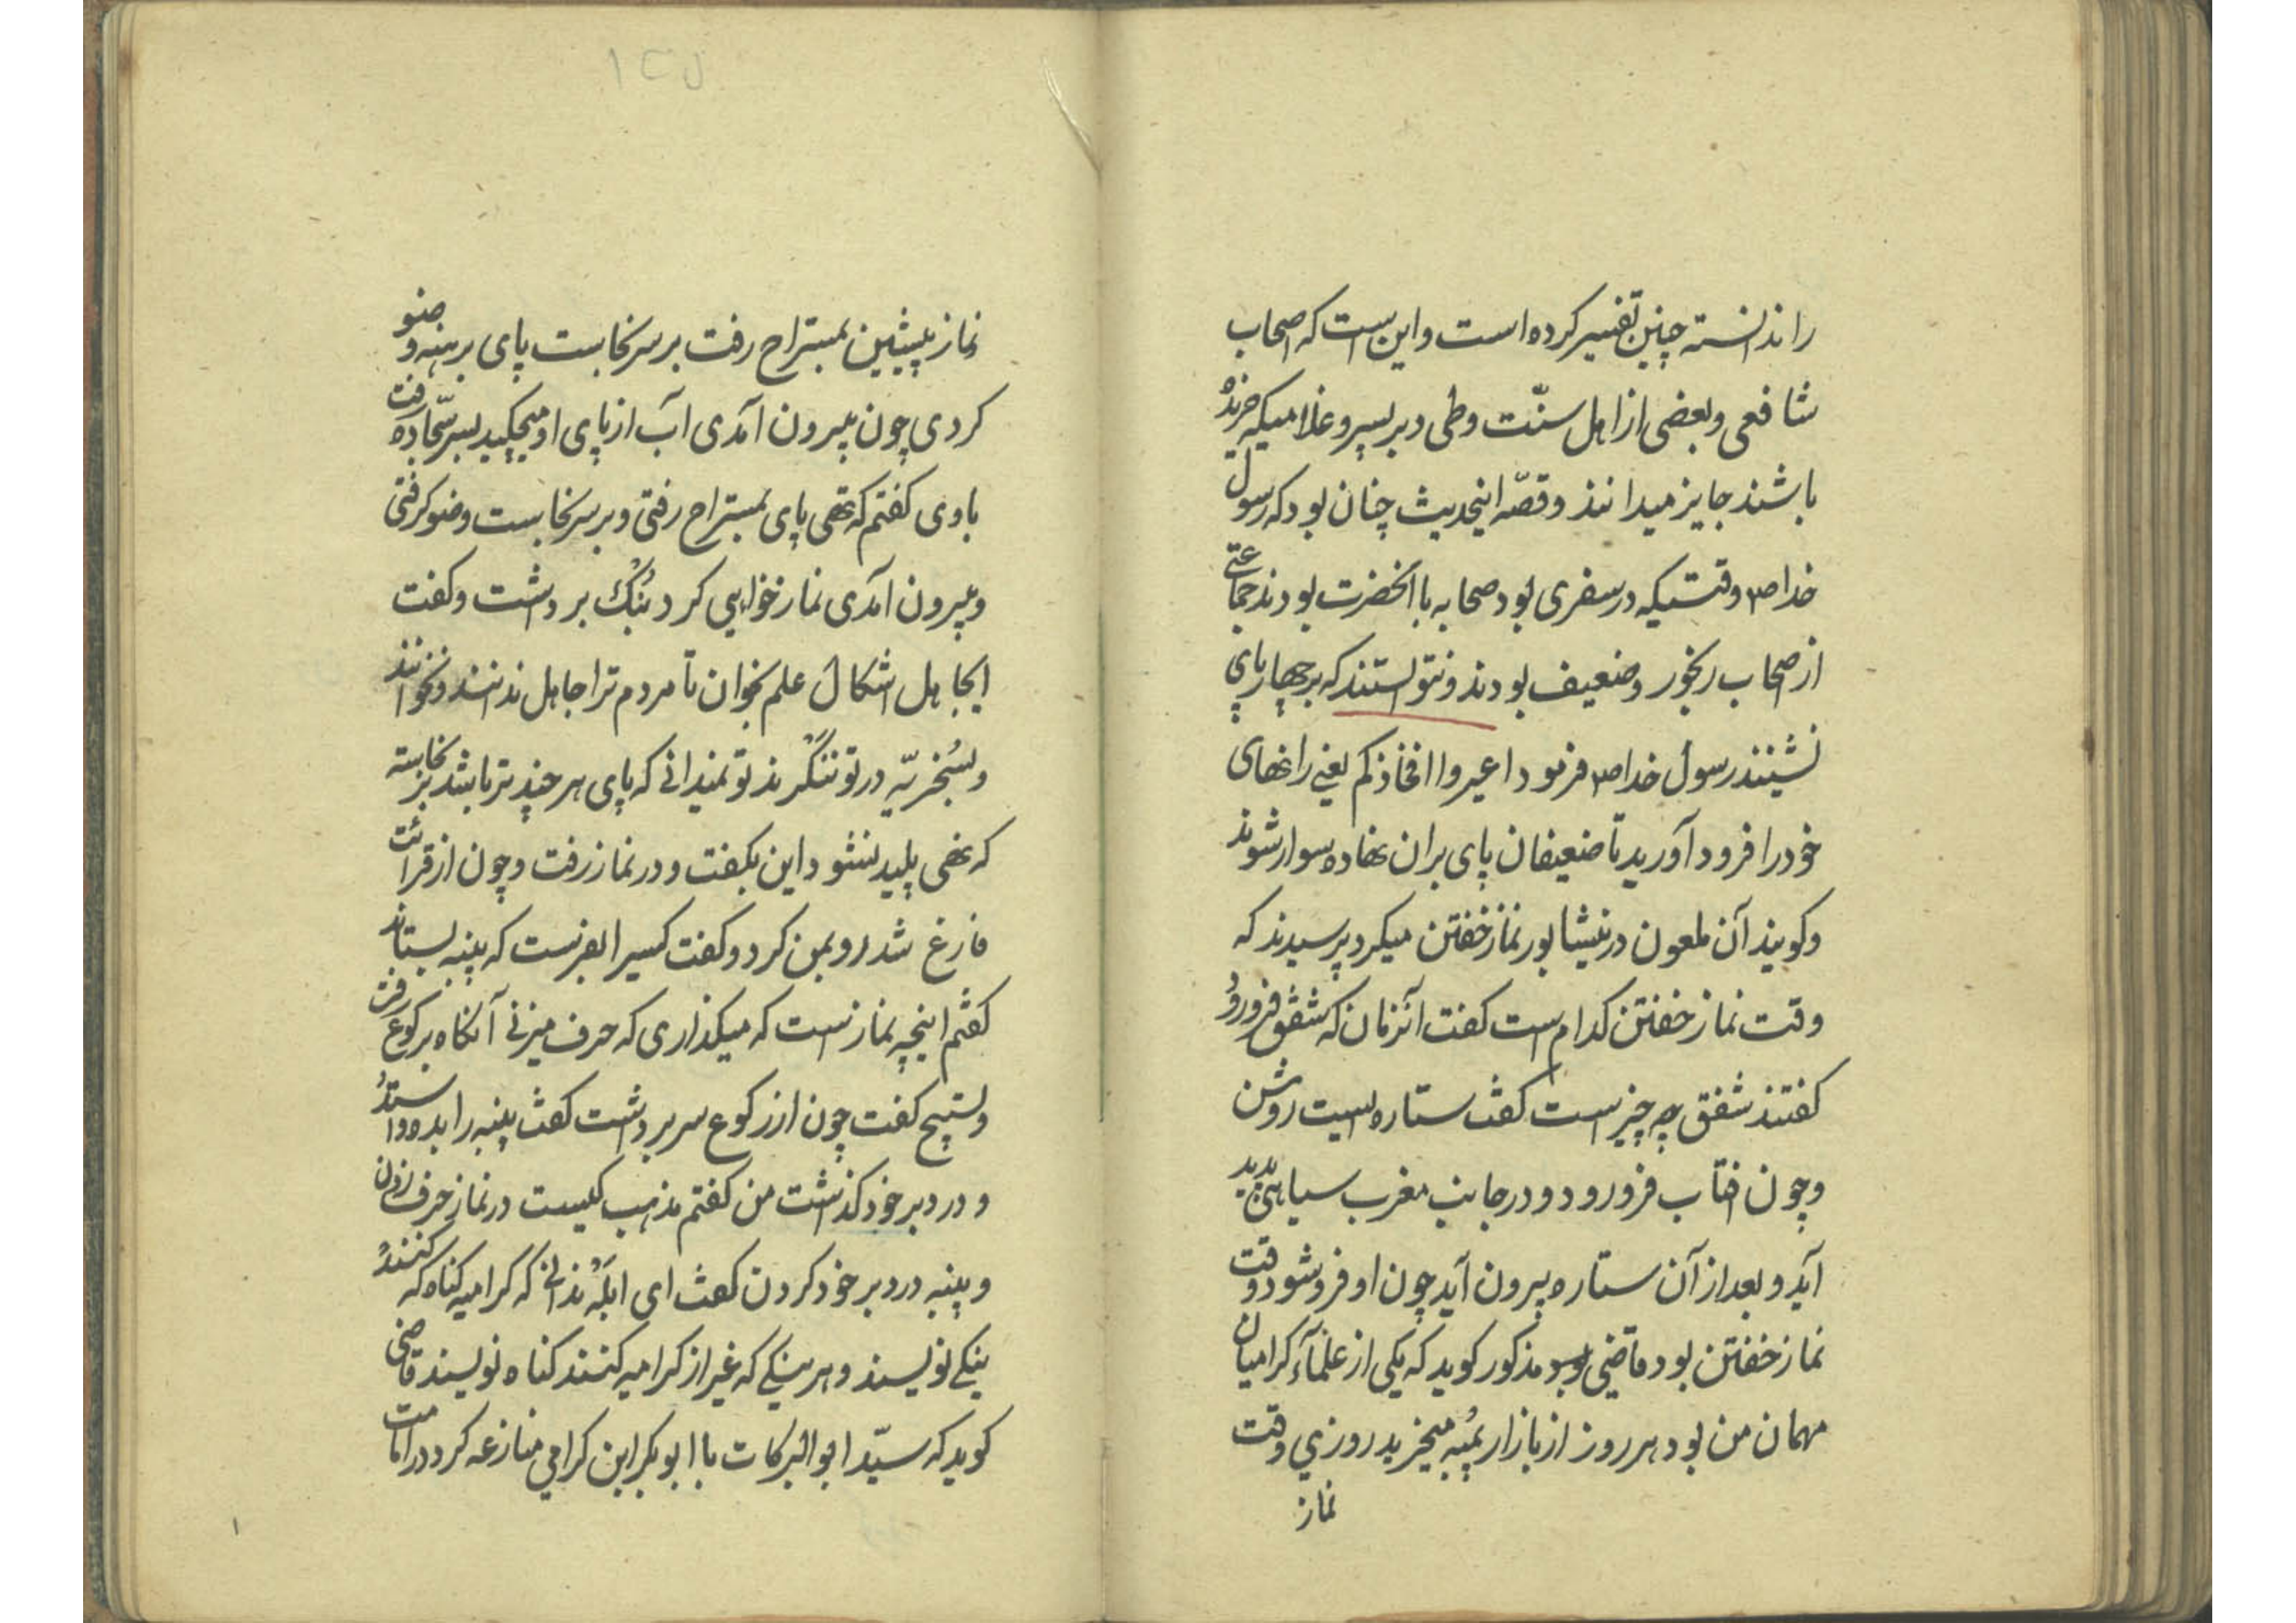 را ندانسته چنین تفسیر کرده است و این است که اصحاب
شافعی و بعضی از اهل سنّت وطی در پسر و غلامیکه خریده
باشند جایز میدانند و قصّه اینحدیث چنان بود که رسول
خدا ص وقتیکه در سفری بود صحابه با آنحضرت بودند جماعتی
از صحاب رنجور و ضعیف بودند و نتوانستند که بر چهارپای
نشینند رسول خدا ص فرمود اعیروا افخاذکم یعنی رانهای
خود را فرود آورید تا ضعیفان پای بران نهاده سوار شوند
و کویند آن ملعون در نیشابور نماز خفتن میکرد پرسیدند که
وقت نماز خفتن کدام است کفت آنزمان که شفق فرو رود
کفتند شفق چه چیز است کفت ستاره ایست روشن
و چون افتاب فرو رود و در جانب مغرب سیاهی پدید
آید و بعد از آن ستاره بیرون آید چون او فرو شود وقت
نماز خفتن بود قاضی مذکور کوید که یکی از علماء کرامیان
مهمان من بود هر روز از بازار پنبه میخرید روزی وقت
نماز
نماز پیشین بمستراح رفت بر سر نجاست پای برهنه وضو
کردی چون بیرون آمدی آب از پای او میچکید بسر سجّاده رفت
باوی کفتم که تهی پای بمستراح رفتی و بر سر نجاست وضو کرفتی
و بیرون آمدی نماز خواهی کرد بُنک برداشت و کفت
ایجاهل اشکال علم بخوان تا مردم ترا جاهل ندانند و نخوانند
و بسُخریّه در تو ننکرند تو نمیدانی که پای هر چند تر باشد بر نجاسته
که نهی پلید نشود این بکفت و در نماز رفت و چون از قرائت
فارغ شد رو بمن کرد و کفت کسیرا بفرست که پنبه بستاند
کفتم اینچه نماز است که میکذاری که حرف میزنی آنکاه برکوع رفت
و تسبیح کفت چون از رکوع سر برداشت کفت پنبه را بده و واستد
و در دبر خود کذاشت من کفتم مذهب کیست در نماز حرف زدن
و پنبه در دبر خود کردن کفت ای ابله ندانی که کرامیه کناه که کنند
نیکی نویسند و هر نیکی که غیر از کرامیه کنند کناه نویسند قاضی
کوید که سیّد ابوالبرکات با ابوبکر ابن کرامی منازعه کرد در امامت